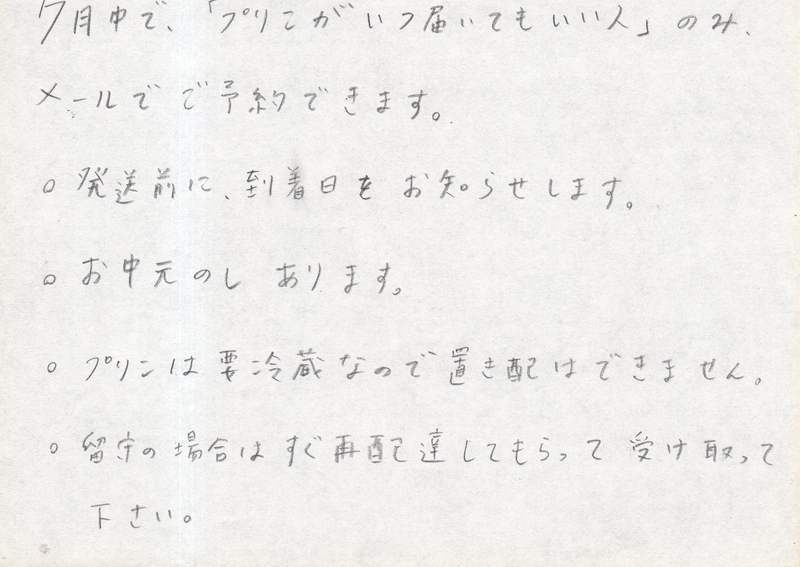 7月中で、「プリンがいつ届いてもいい人」のみ、
メールでご予約できます。
○ 発送前に、到着日をお知らせします。
○ お中元のしあります。
○ プリンは要冷蔵なので置き配はできません。
○ 留守の場合はすぐ再配達してもらって受け取って
下さい。